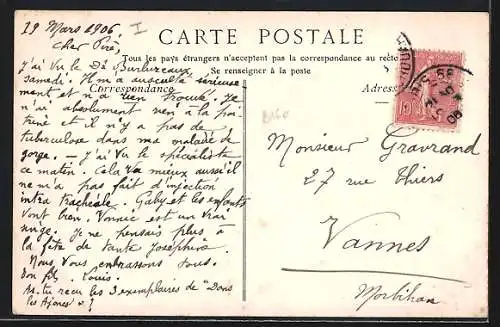 19 Mars 1906
I
Cher Père,
CARTE POSTALE
Tous les pays étrangers n'acceptent pas la correspondance au recto
Se renseigner à la poste
Correspondance
Adres
J'ai vu le Dr Burlureaux
samedi. Il m'a ausculté sérieuse
ment et n'a rien trouvé. Je
n'ai absolument rien à la poi-
trine et il n'y a pas de
tuberculose dans ma maladie de
gorge. — J'ai vu le spécialiste
ce matin. Cela va mieux aussi il
ne m'a pas fait d'injection
intra trachéale. Gaby et les enfants
vont bien. Vonnic est un vrai
singe. Je ne pensais plus à
la fête de tante Joséphine.
Nous vous embrassons tous.
Ton fils, Louis.
As-tu reçu les 3 exemplaires de "Dans
les Ajoncs" ?
Monsieur Gravrand
27 rue Thiers
Vannes
Morbihan